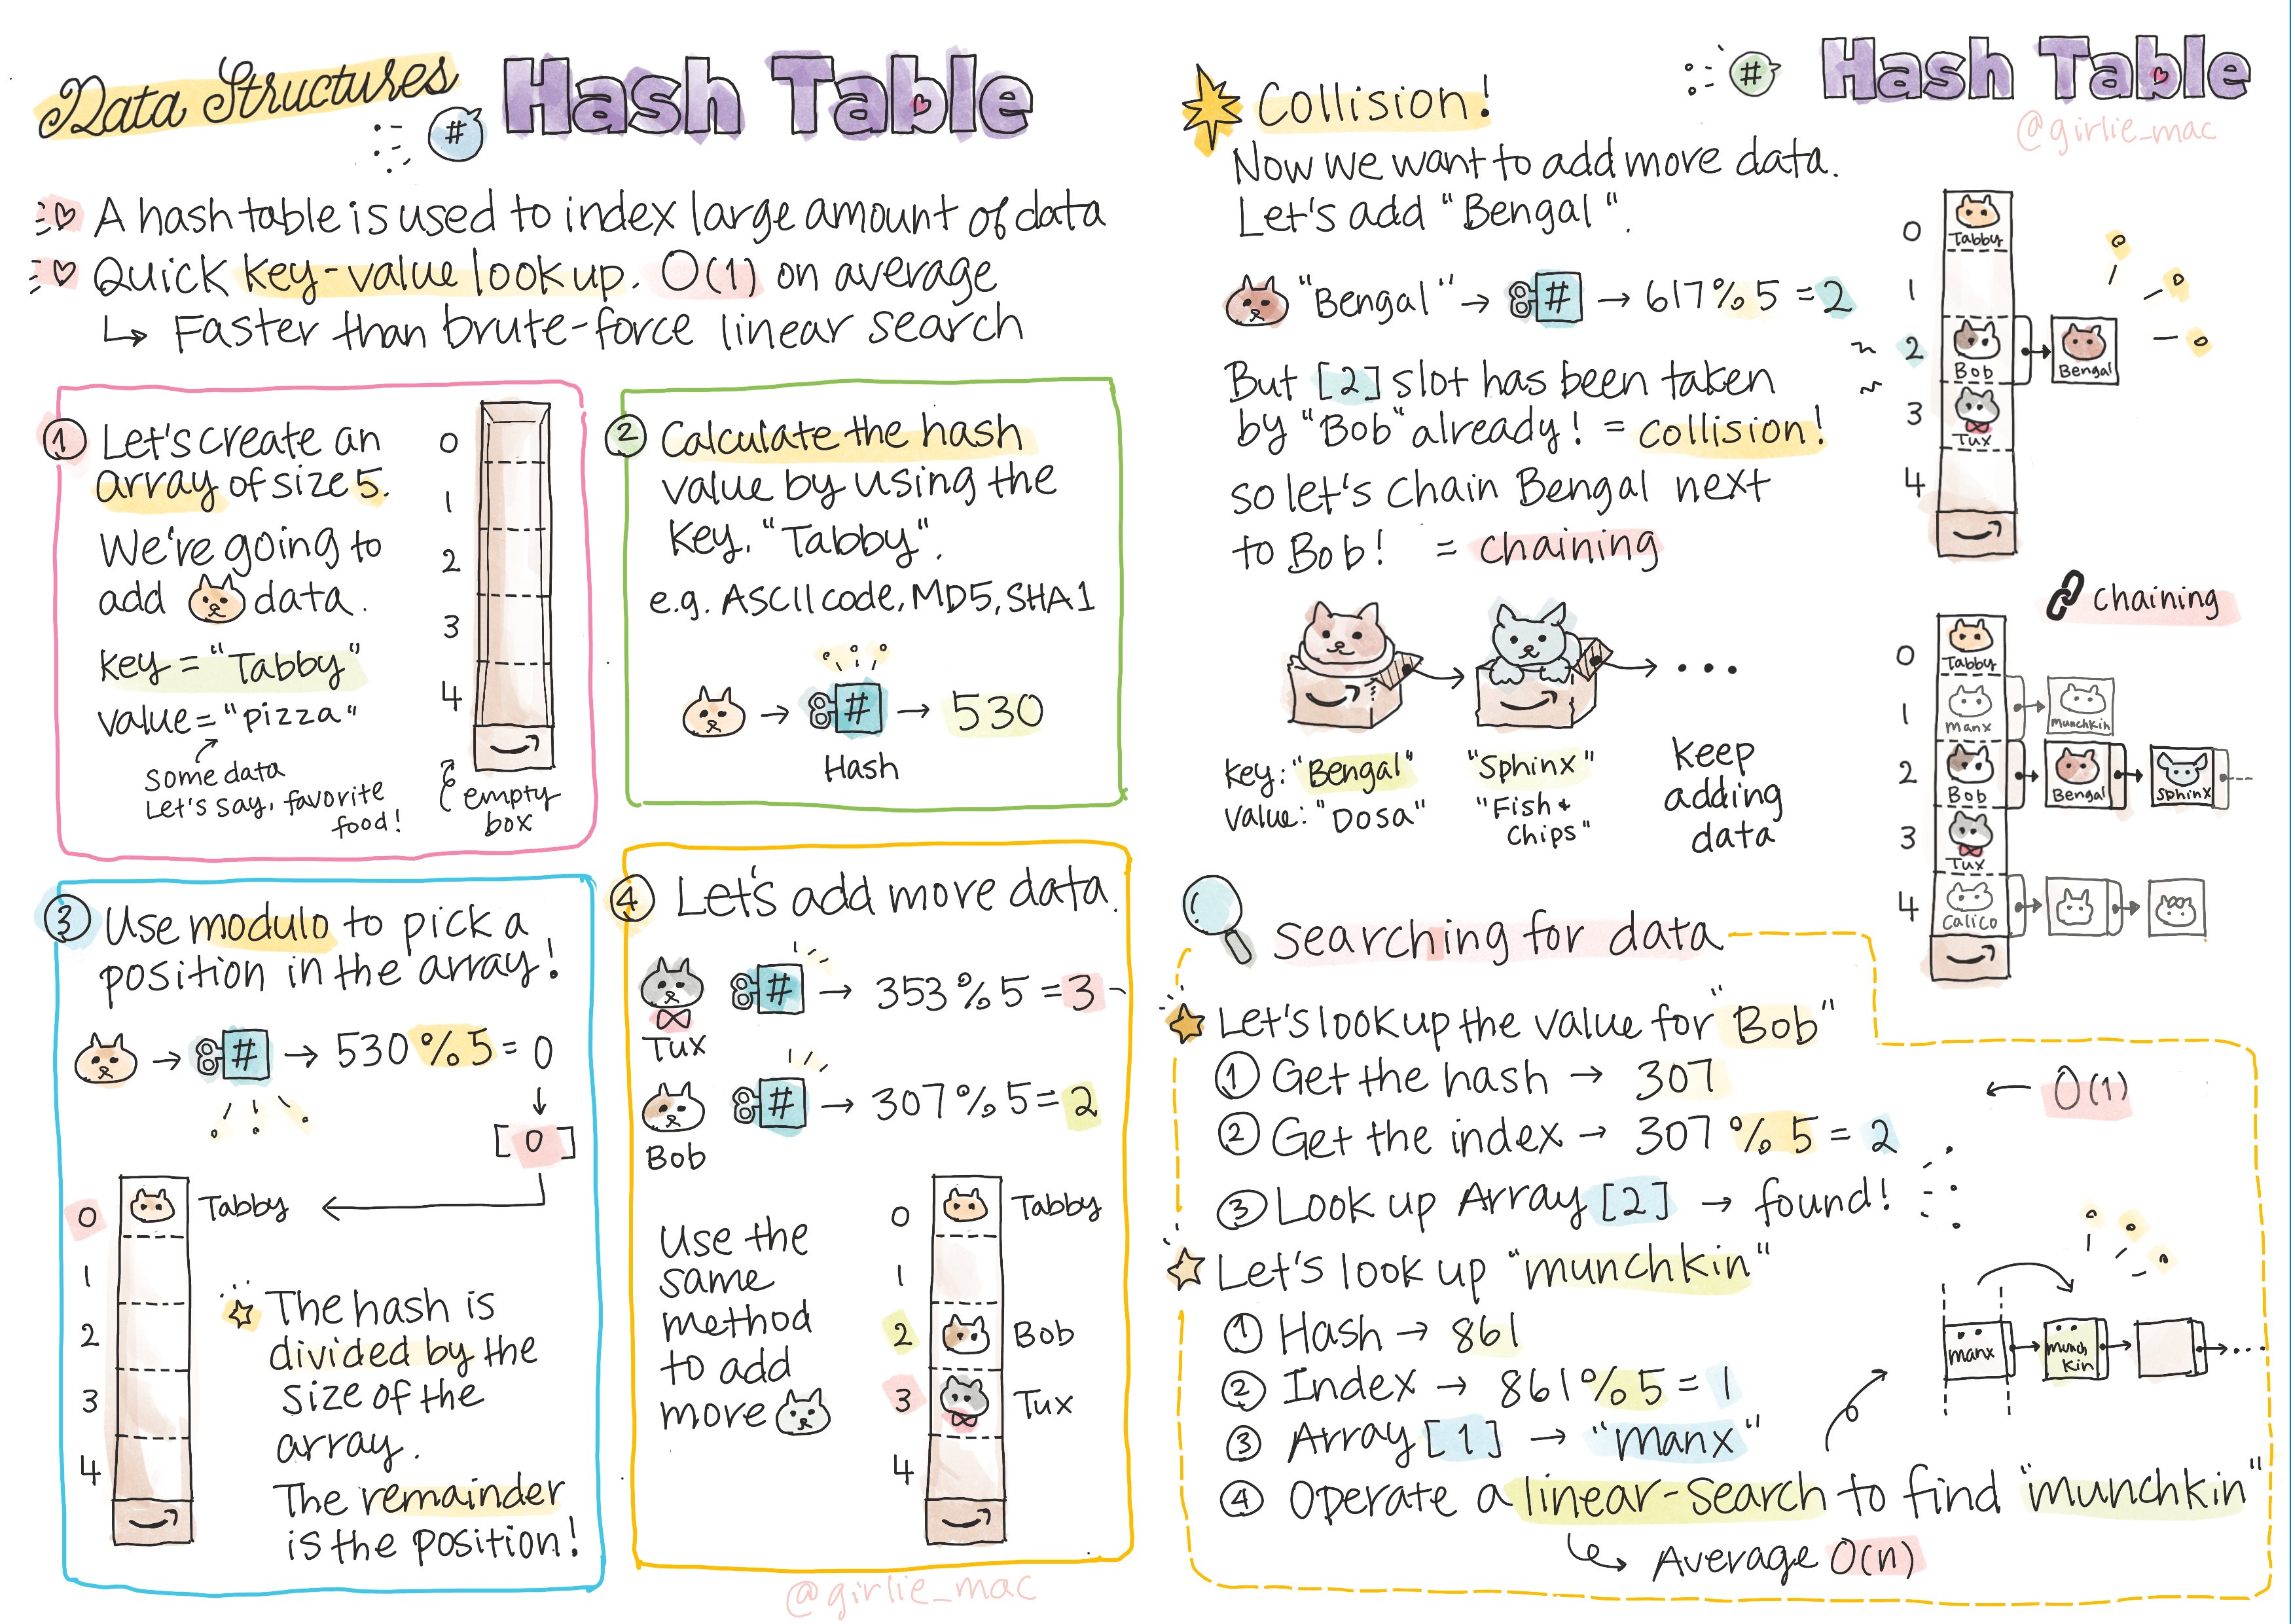 Data Structures
# Hash Table
A hash table is used to index large amount of data
Quick key-value look up. O(1) on average
↳ Faster than brute-force linear search
① Let's create an
array of size 5.
We're going to
add data.
key = "Tabby"
value = "pizza"
some data
Let's say, favorite
food!
0
1
2
3
4
empty
box
② Calculate the hash
value by using the
key, "Tabby".
e.g. ASCII code, MD5, SHA1
→ # → 530
Hash
③ Use modulo to pick a
position in the array!
→ # → 530 % 5 = 0
[0]
0 Tabby
1
2
3
4
The hash is
divided by the
size of the
array.
The remainder
is the position!
④ Let's add more data.
# → 353 % 5 = 3
Tux
# → 307 % 5 = 2
Bob
Use the
same
method
to add
more
0 Tabby
1
2 Bob
3 Tux
4
@girlie_mac
# Hash Table
@girlie_mac
Collision!
Now we want to add more data.
Let's add "Bengal".
"Bengal" → # → 617 % 5 = 2
But [2] slot has been taken
by "Bob" already! = collision!
so let's chain Bengal next
to Bob! = chaining
0 Tabby
1
2 Bob Bengal
3 Tux
4
Key: "Bengal"
Value: "Dosa"
"Sphinx"
"Fish &
Chips"
...
Keep
adding
data
chaining
0 Tabby
1 Manx Munchkin
2 Bob Bengal Sphinx
3 Tux
4 Calico
Searching for data
Let's look up the value for "Bob"
① Get the hash → 307
② Get the index → 307 % 5 = 2
③ Look up Array [2] → found!
← O(1)
Let's look up "munchkin"
① Hash → 861
② Index → 861 % 5 = 1
③ Array [1] → "manx"
④ Operate a linear-search to find "munchkin"
↳ Average O(n)
manx
munch
kin
...